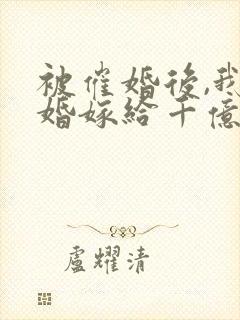 被催婚後,我
婚嫁給千億
盧耀清